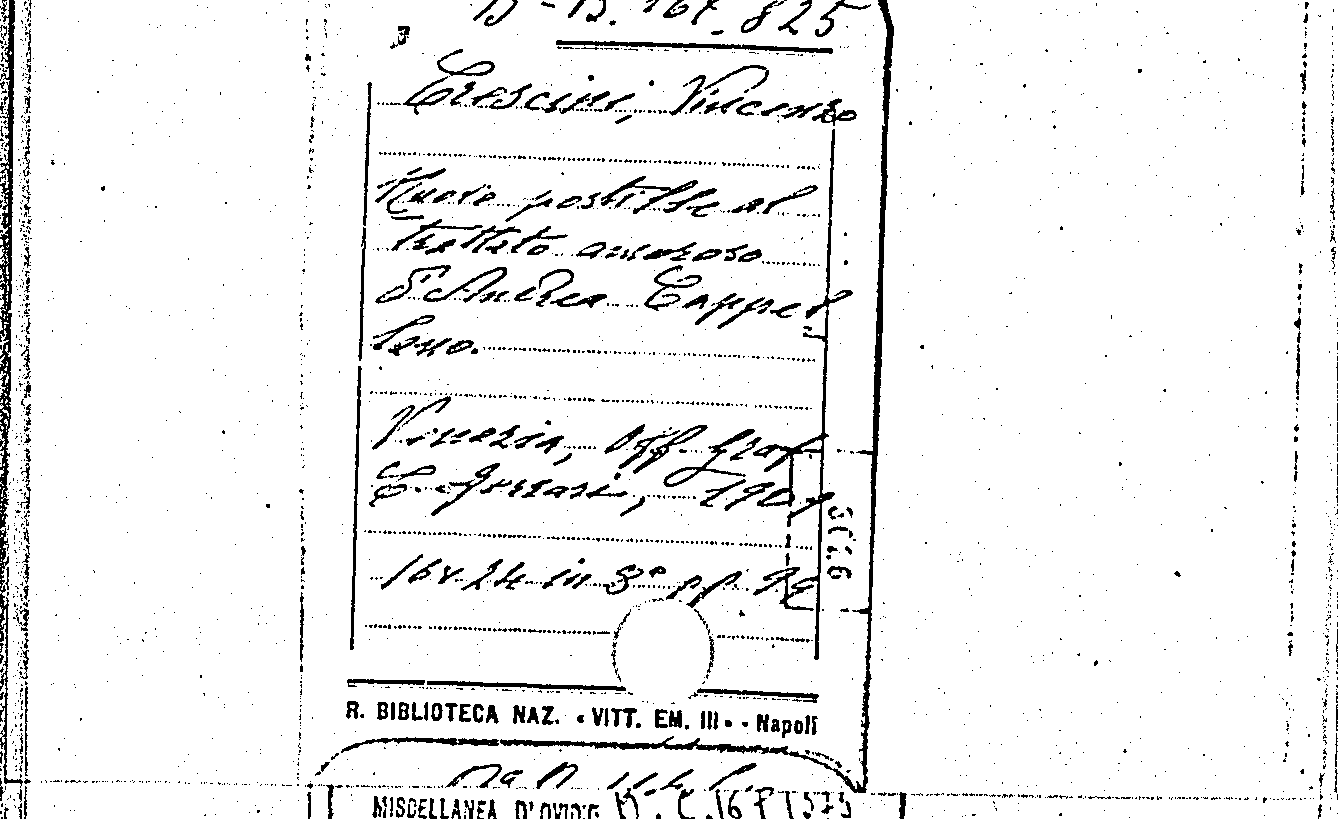 B-B. 167. 825
Crescini, Vincenzo
Nuove postille al
trattato amoroso
d'Andrea Cappel
lano.
Venezia, Off. Graf.
C. Ferrari, 1909
16x24 in 8° pp.
R. BIBLIOTECA NAZ. «VITT. EM. III» - Napoli
MISCELLANEA D'OVIDIO